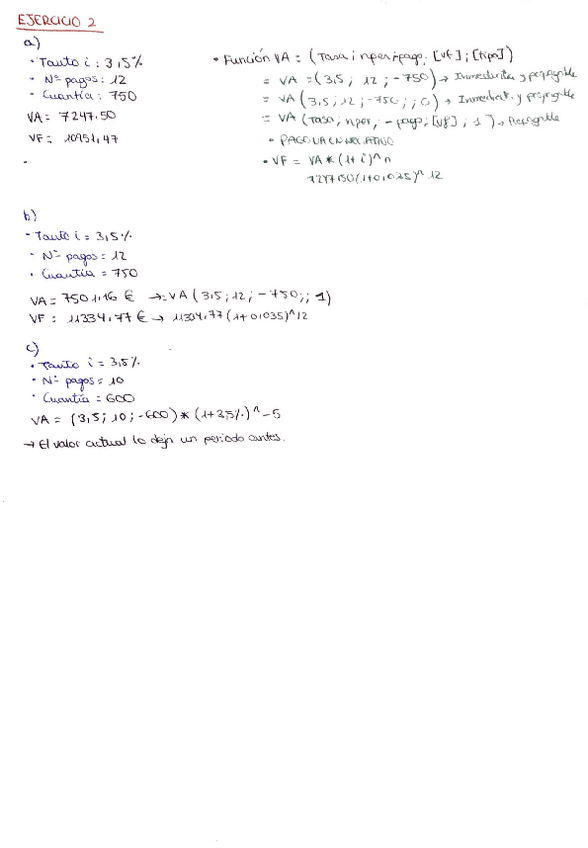 EJERCICIO 2
a)
• Tanto i : 3,5%
• Nº pagos : 12
• Cuantía : 750
VA = 7247.50
VF = 10951,47
• Función VA = (Tasa ; nper ; pago ; [vf] ; [tipo])
= VA = (3,5 ; 12 ; -750) → Inmediata y pospagable
= VA (3,5 ; 12 ; -750 ; ; 0) → Inmediat. y pospagable
= VA (Tasa ; nper, - pago ; [vf] ; 1) → Prepagable
• PAGO VA EN NEGATIVO
• VF = VA * (1+i)^n
7247,50 (1+0,035)^12
b)
• Tanto i = 3,5%
• Nº pagos = 12
• Cuantía = 750
VA = 7501,16 € → = VA (3,5 ; 12 ; -750 ; ; 1)
VF = 11334,77 € → 11334,77 (1+0,035)^12
c)
• Tanto i = 3,5%
• Nº pagos = 10
• Cuantía = 600
VA = (3,5 ; 10 ; -600) * (1+3,5%)^-5
→ El valor actual lo deja un periodo antes.